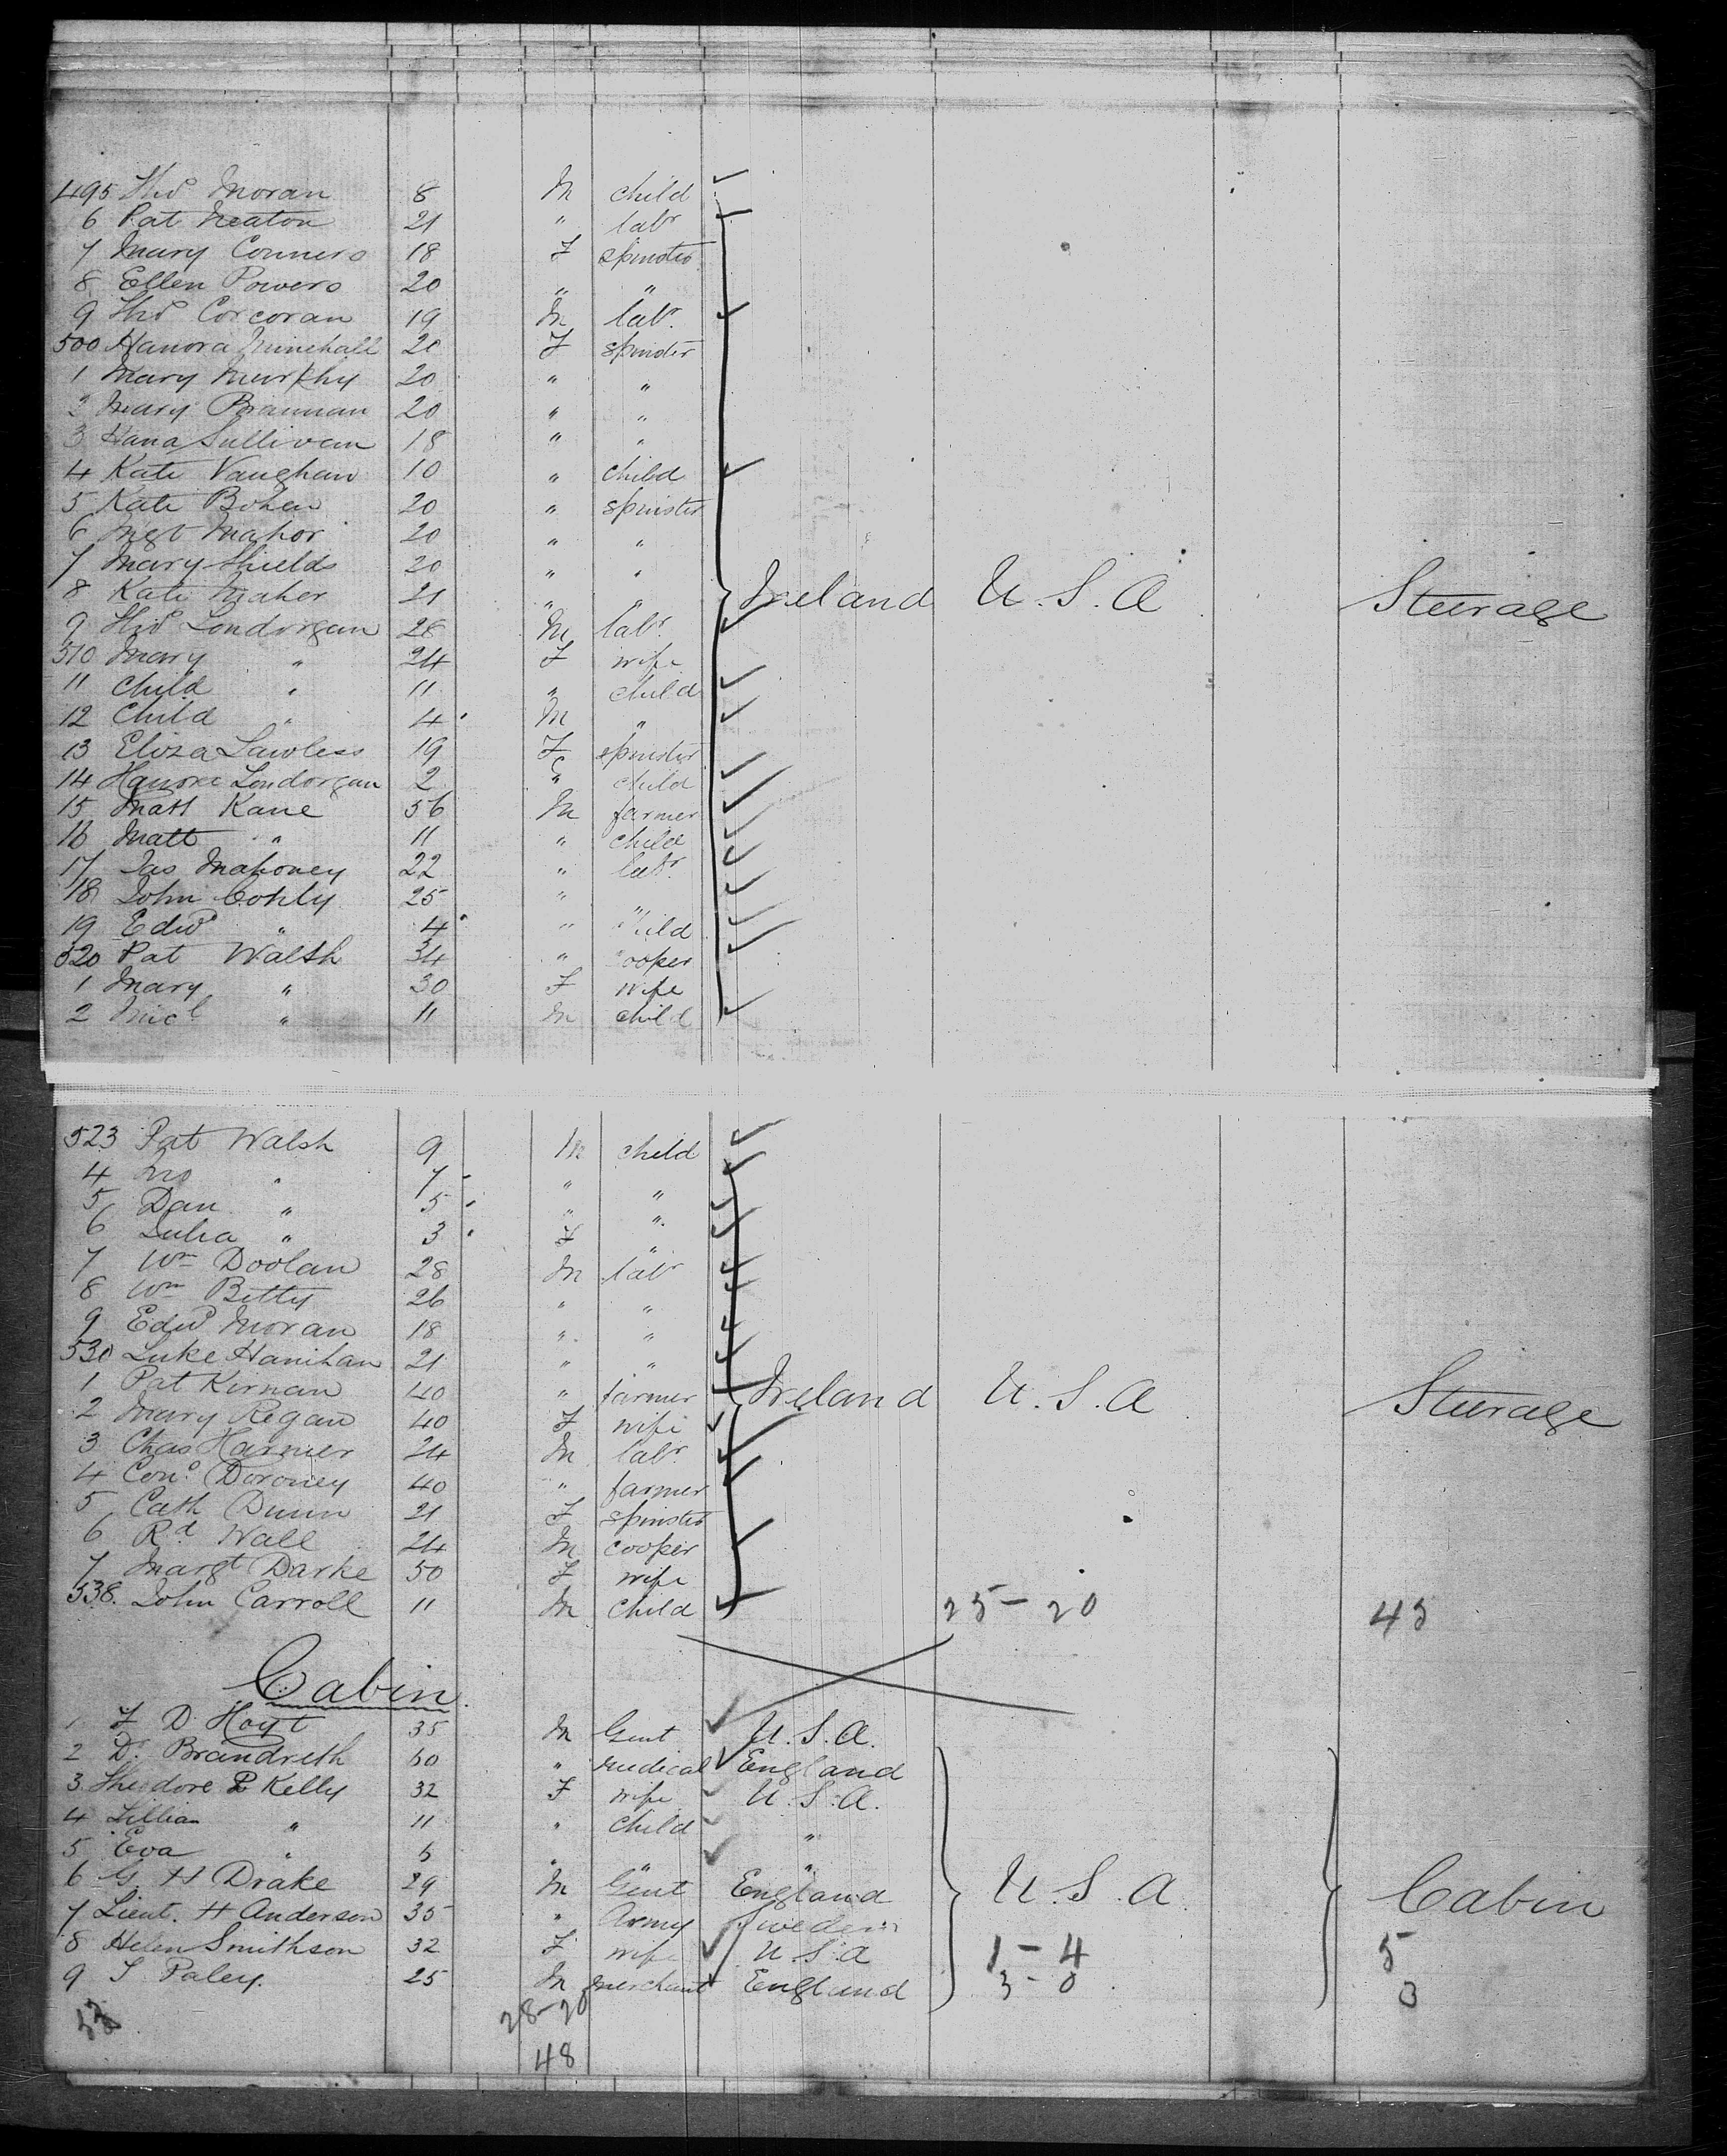 495 Thos Moran 8 M child
6 Pat Neaton 21 " labr
7 Mary Conners 18 F spinster
8 Ellen Powers 20 " "
9 Thos Corcoran 19 M labr.
500 Hanora Minehall 20 F spinster
1 Mary Murphy 20 " "
2 Mary Brannan 20 " "
3 Hana Sullivan 18 " "
4 Kate Vaughan 10 " child
5 Kate Bohen 20 " spinster
6 Mgt Mahor 20 " "
7 Mary Shields 20 " "
8 Kate Maher 21 " " Ireland U.S.A Steerage
9 Thos Londorgan 28 M labr.
510 Mary " 24 F wife
11 Child " 11 " child
12 Child " 4 M "
13 Eliza Lawless 19 F spinster
14 Hanora Londorgan 2 " child
15 Matt Kane 56 M farmer
16 Matt " 11 " child
17 Jas Mahoney 22 " labr.
18 John 25 " "
19 Edwd " 4 " child
520 Pat Walsh 34 " cooper
1 Mary " 30 F wife
2 Micl " 11 M child
523 Pat Walsh 9 M child
4 Jno " 7 " "
5 Dan " 5 " "
6 Julia " 3 F "
7 Wm Doolan 28 M labr
8 Wm Betty 26 " "
9 Edwd Moran 18 " "
530 Luke Hanihan 21 " "
1 Pat Kirnan 40 " farmer Ireland U.S.A Steerage
2 Mary Regan 40 F wife
3 Chas Harmer 24 M labr.
4 Cons Doroney 40 " farmer
5 Cath Dunn 21 F spinster
6 Rd Wall 24 M cooper
7 Margt Darke 50 F wife
538. John Carroll 11 M child 25-20 45
Cabin
1 F D Hoyt 35 M Gent U.S.A.
2 Dr. Brandreth 60 " medical England
3 Theodore P Kelly 32 F wife U.S.A.
4 Lillian " 11 " child "
5 Eva " 6 " " "
6 G. H Drake 29 M Gent England U.S.A. Cabin
7 Lieut. H Anderson 35 " Army Sweden
8 Helen Smithson 32 F wife U.S.A 1-4 5
9 S. Paley. 25 M merchant England 3-0 3
28-20
48